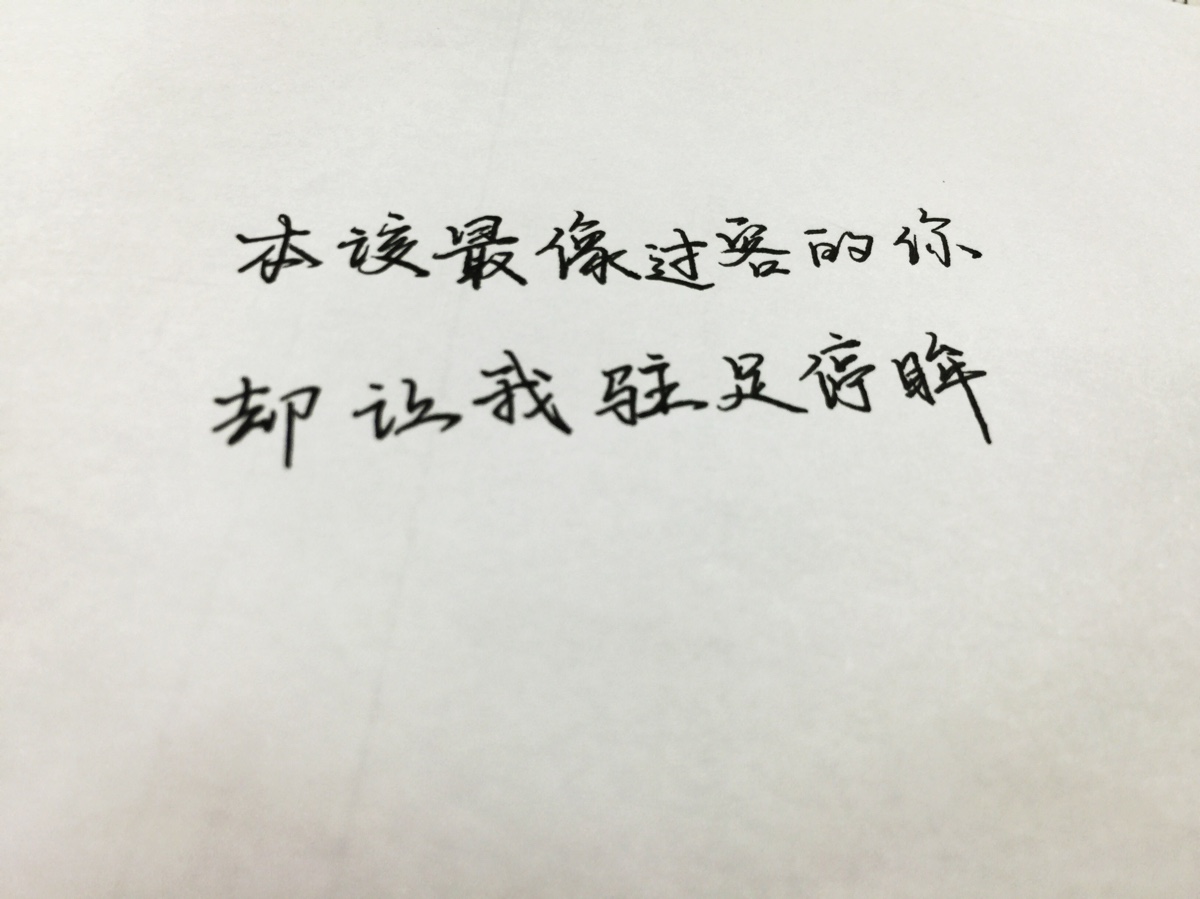 本该最像过客的你
却让我驻足停眸